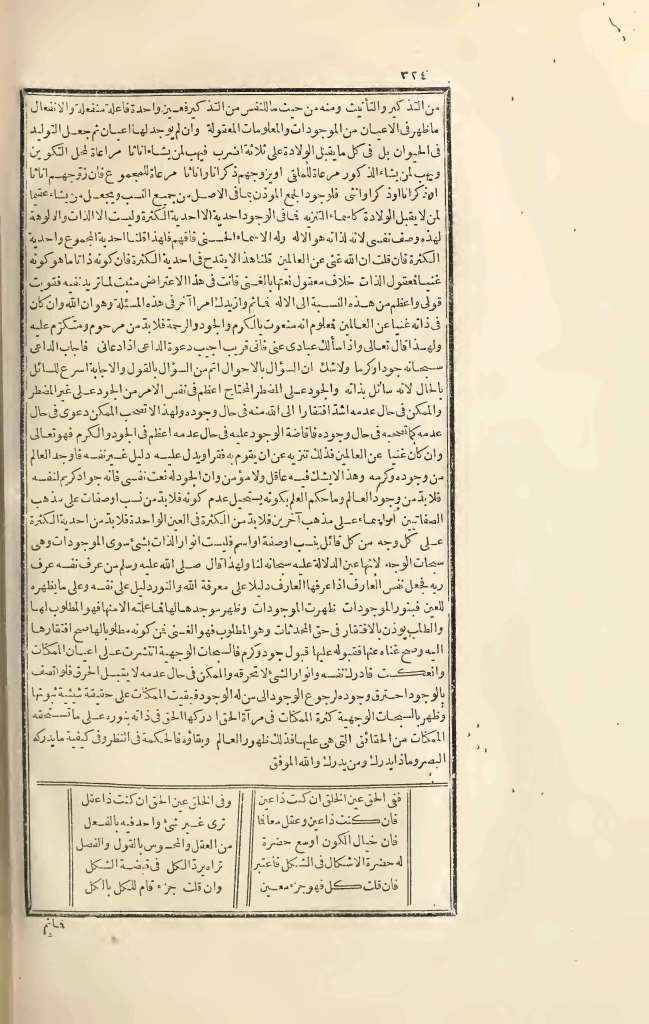 ٣٢٤
من التذكير والتأنيث ومنه من حيث ما للنفس من التذكير فعين واحدة فاعلة منفعلة والانفعال
ما ظهر فى الاعيان من الموجودات والمعلومات المعقولة وان لم يوجد لها اعيان ثم جعل التوليد
فى الحيوان بل فى كل ما يقبل الولادة على ثلاثة اضرب فيهب لمن يشاء اناثا مراعاة لمحل التكوين
ويهب لمن يشاء الذكور مرعاة للملقى او يزوجهم ذكرانا واناثا مرعاة للمجموع فان زوجهم اناثا
اوذكرانا او ذكرا وانثى فلوجود الجمع المؤذن بما فى الاصل من جميع النسب ويجعل من يشاء عقيما
لمن لا يقبل الولادة كاسماء التنزيه فما فى الوجود احدية الا احدية الكثرة وليست الا الذات والالوهة
لهذه وصف نفسى لانه لذاته هو الاله وله الاسماء الحسنى فافهم فلهذا قلنا احدية المجموع واحدية
الكثرة فان قلت ان الله غنى عن العالمين قلنا هذا لا يقدح فى احدية الكثرة فان كونه ذاتا ما هو كونه
غنيا فمعقول الذات خلاف معقول نعتها بالغنى فانت فى هذا الاعتراض مثبت لما تريد نفيه فقويت
قولى واعظم من هذه النسبة الى الاله فما ثم وازيدك امرا آخر فى هذه المسئلة وهو ان الله وان كان
فى ذاته غنيا عن العالمين فمعلوم انه منعوت بالكرم والجود والرحمة فلا بد من مرحوم ومتكرم عليه
ولهذا قال تعالى واذا سألك عبادى عنى فانى قريب اجيب دعوة الداعى اذا دعانى فاجاب الداعى
سبحانه جودا وكرما ولا شك ان السؤال بالاحوال اتم من السؤال بالقول والاجابة اسرع للسائل
بالحال لانه سائل بذاته والجود على المضطر المحتاج اعظم فى نفس الامر من الجود على غير المضطر
والممكن فى حال عدمه اشد افتقارا الى الله منه فى حال وجوده ولهذا لا تصحب الممكن دعوى فى حال
عدمه كما تصحبه فى حال وجوده فافاضة الوجود عليه فى حال عدمه اعظم فى الجود والكرم فهو تعالى
وان كان غنيا عن العالمين فذلك تنزيه عن ان يقوم به فقر او يدل عليه دليل غير نفسه فاوجد العالم
من وجوده وكرمه وهذا لا يشك فيه عاقل ولا مؤمن وان الجود له نعت نفسى فانه جواد كريم لنفسه
فلا بد من وجود العالم وما حكم العلم بكونه يستحيل عدم كونه فلا بد من نسب او صفات على مذهب
الصفاتيين او اسماء على مذهب آخرين فلا بد من الكثرة فى العين الواحدة فلا بد من احدية الكثرة
على كل وجه من كل قائل بنسب او صفة او اسم فليست انوار الذات بشئ سوى الموجودات وهى
سبحات الوجه لانها عين الدلالة عليه سبحانه لنا ولهذا قال صلى الله عليه وسلم من عرف نفسه عرف
ربه فجعل نفس العارف اذا عرفها العارف دليلا على معرفة الله والنور دليل على نفسه وعلى ما يظهره
للعين فبنور الموجودات ظهرت الموجودات وظهر موجدها لها فما علمته الا منها فهو المطلوب لها
والطلب يؤذن بالافتقار فى حق المحدثات وهو المطلوب فهو الغنى فمن كونه مطلوبا لها صح افتقارها
اليه وصح غناه عنها فقبوله عليها قبول جود وكرم فالسبحات الوجهية انتشرت على اعيان الممكنات
وانعكست فادرك نفسه وانوار الشئ لا تحرقه والممكن فى حال عدمه لا يقبل الحرق فلو اتصف
بالوجود احترق وجوده لرجوع الوجود الى من له الوجود فبقيت الممكنات على حقيقة شيئية ثبوتها
وظهر بالسبحات الوجهية كثرة الممكنات فى مرآة الحق ادركها الحق فى ذاته بنوره على ما تستحقه
الممكنات من الحقائق التى هى عليها فذلك ظهور العالم وبقاؤه فالحكمة فى النظر وفى كيفية ما يدركه
البصر وماذا يدرك ومن يدرك والله الموفق
ففى الحق عين الخلق ان كنت ذاعين وفى الخلق عين الحق ان كنت ذاعقل
فان كنت ذاعين وعقل معا فما ترى غير شئ واحد فيه بالفعل
فان خيال الكون اوسع حضرة من العقل والمحسوس بالقول والفصل
له حضرة الاشكال فى الشكل فاعتبر تراه يرد الكل فى قبضة الشكل
فان قلت كل فهو جزء معين وان قلت جزء قام للكل بالكل
فما ثم